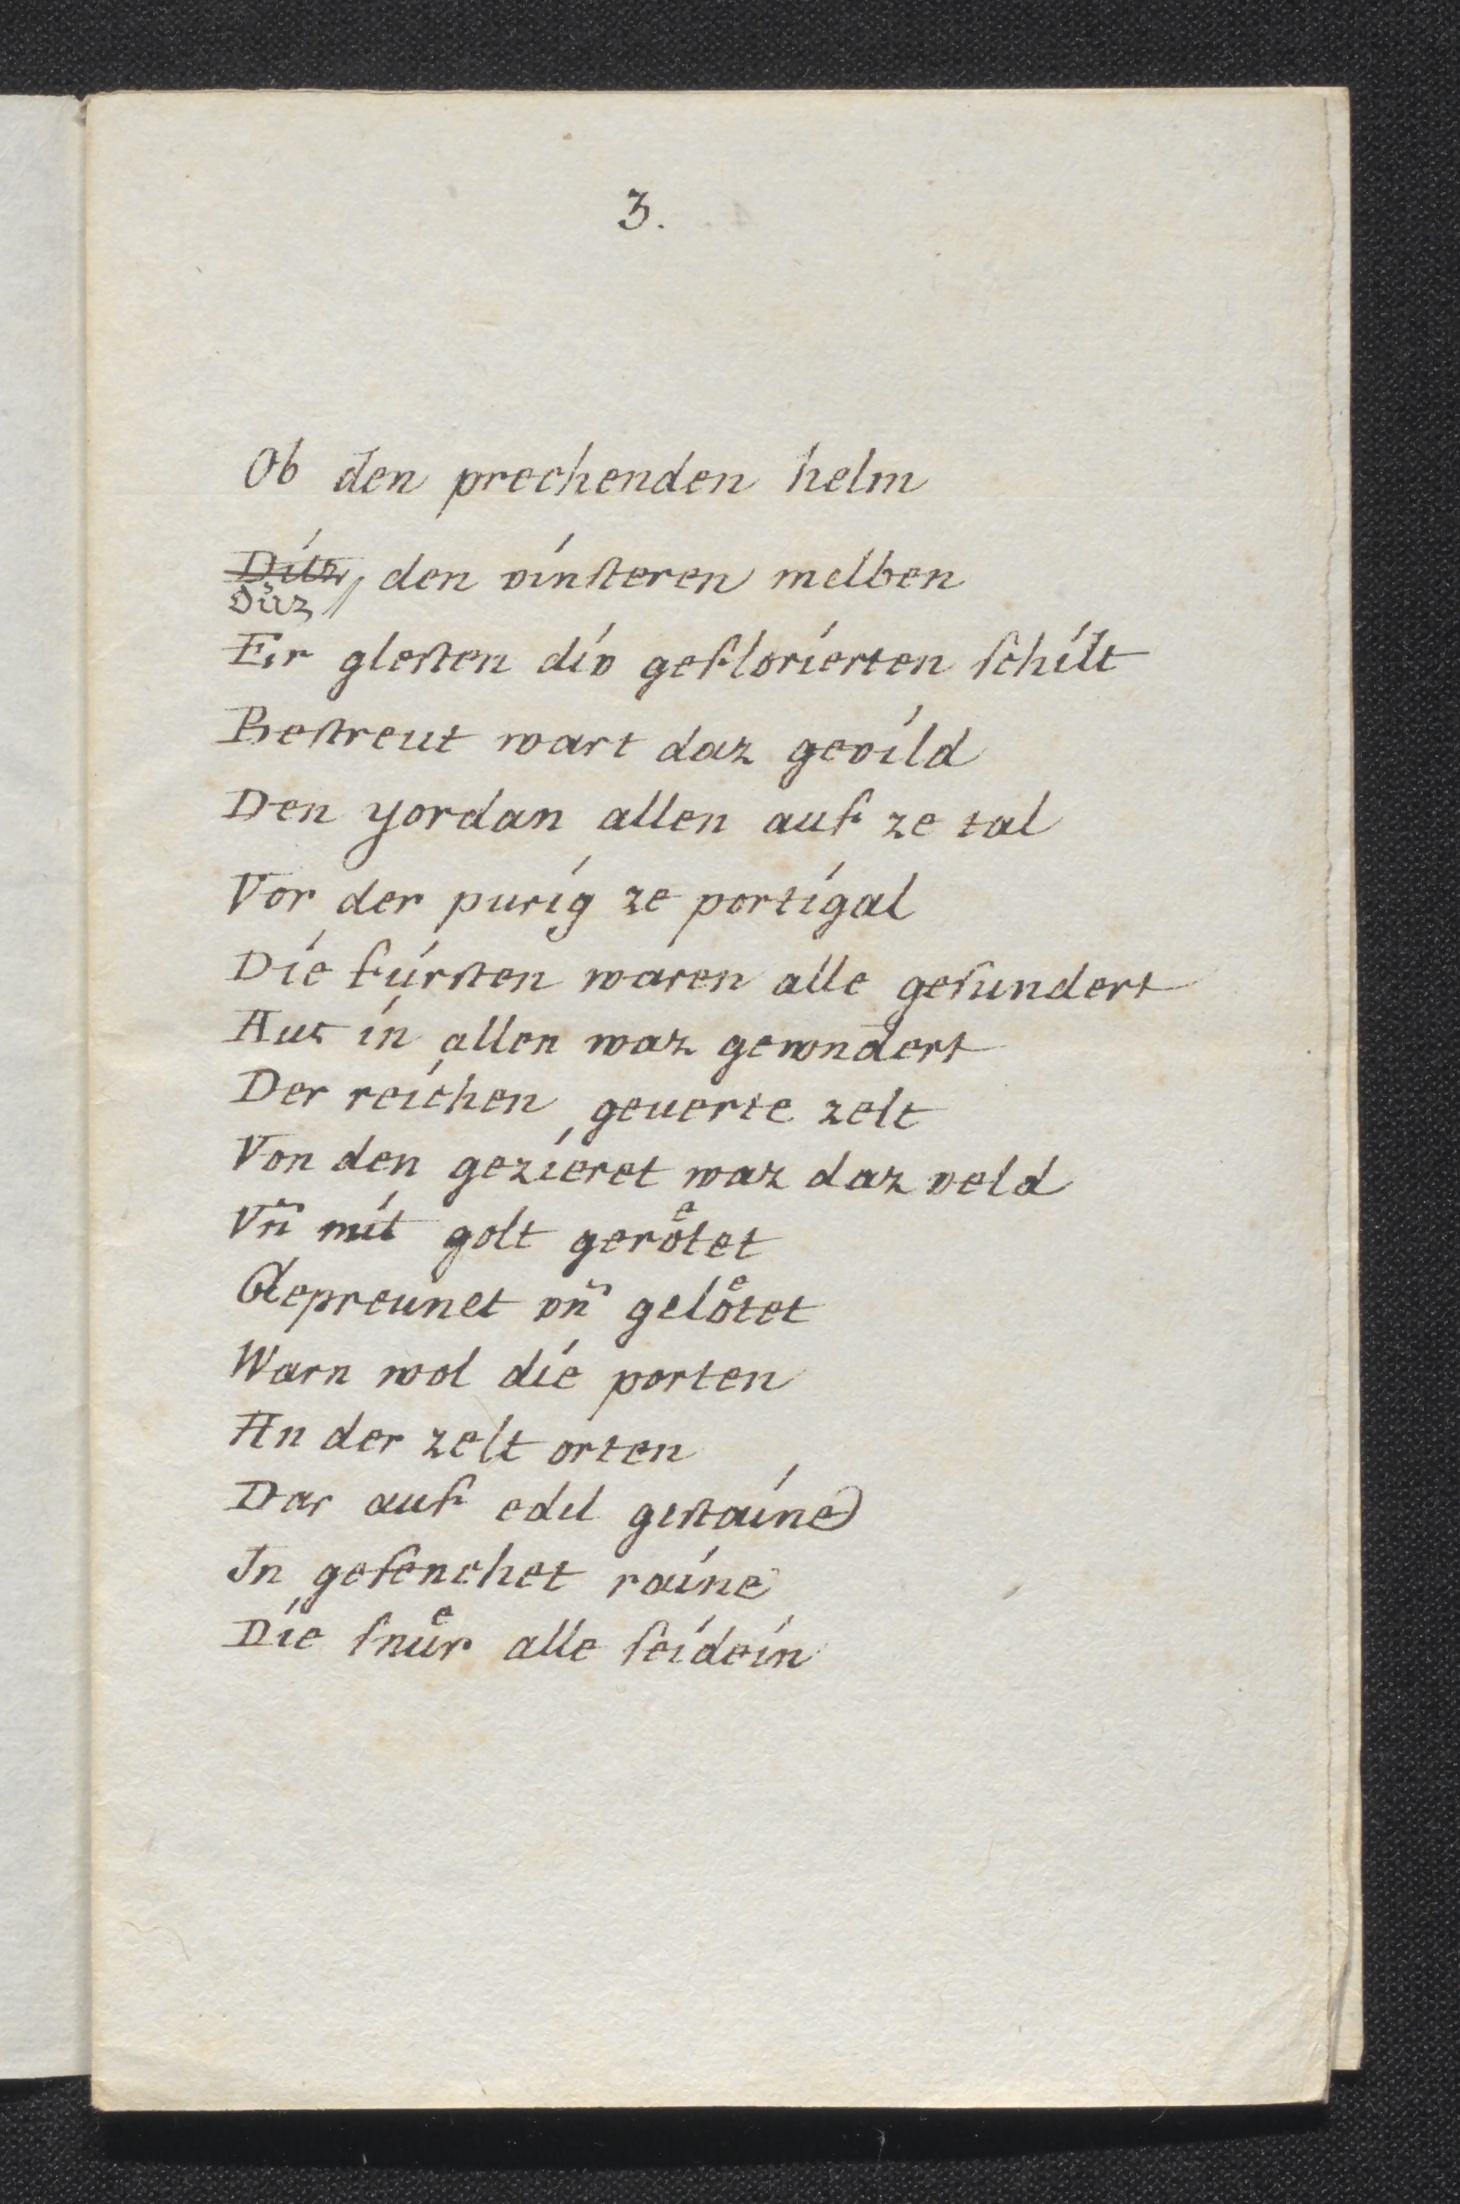 3.
Ob den prechenden helm
den vinſteren melben
Duz
Er gleſten div geflorierten ſchilt
Beſtreut wart daz gevild
Den yordan allen auf ze tal
Vor der purig ze portigal
Die fúrſten waren alle geſundert
Aus in allen waz gewndert
Der reichen geuerte zelt
Von den gezieret waz daz veld
Vn̄ mit golt geroͤtet
Gepreunet vn̄ geloͤtet
Warn wol die porten
An der zelt orten
Dar auf edel geſtaine
In geſenchet raine
Die ſnuͤr alle ſeidein